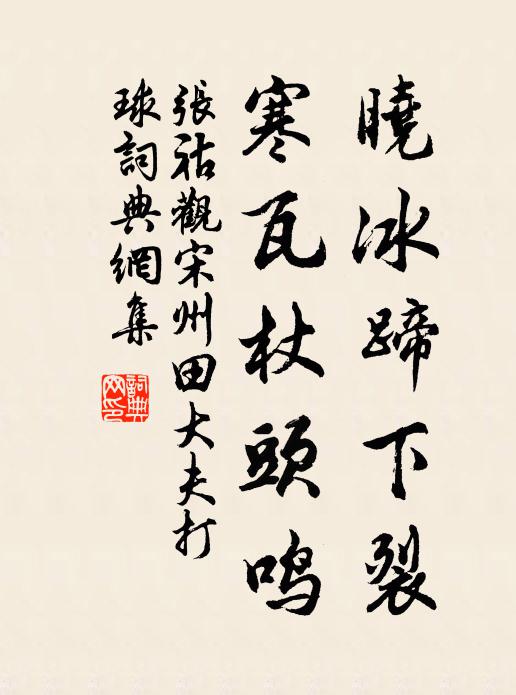 曉冰蹄下裂
寒瓦杖頭鳴
張祜觀宋州田大夫打
球詞典網集
詞典网印